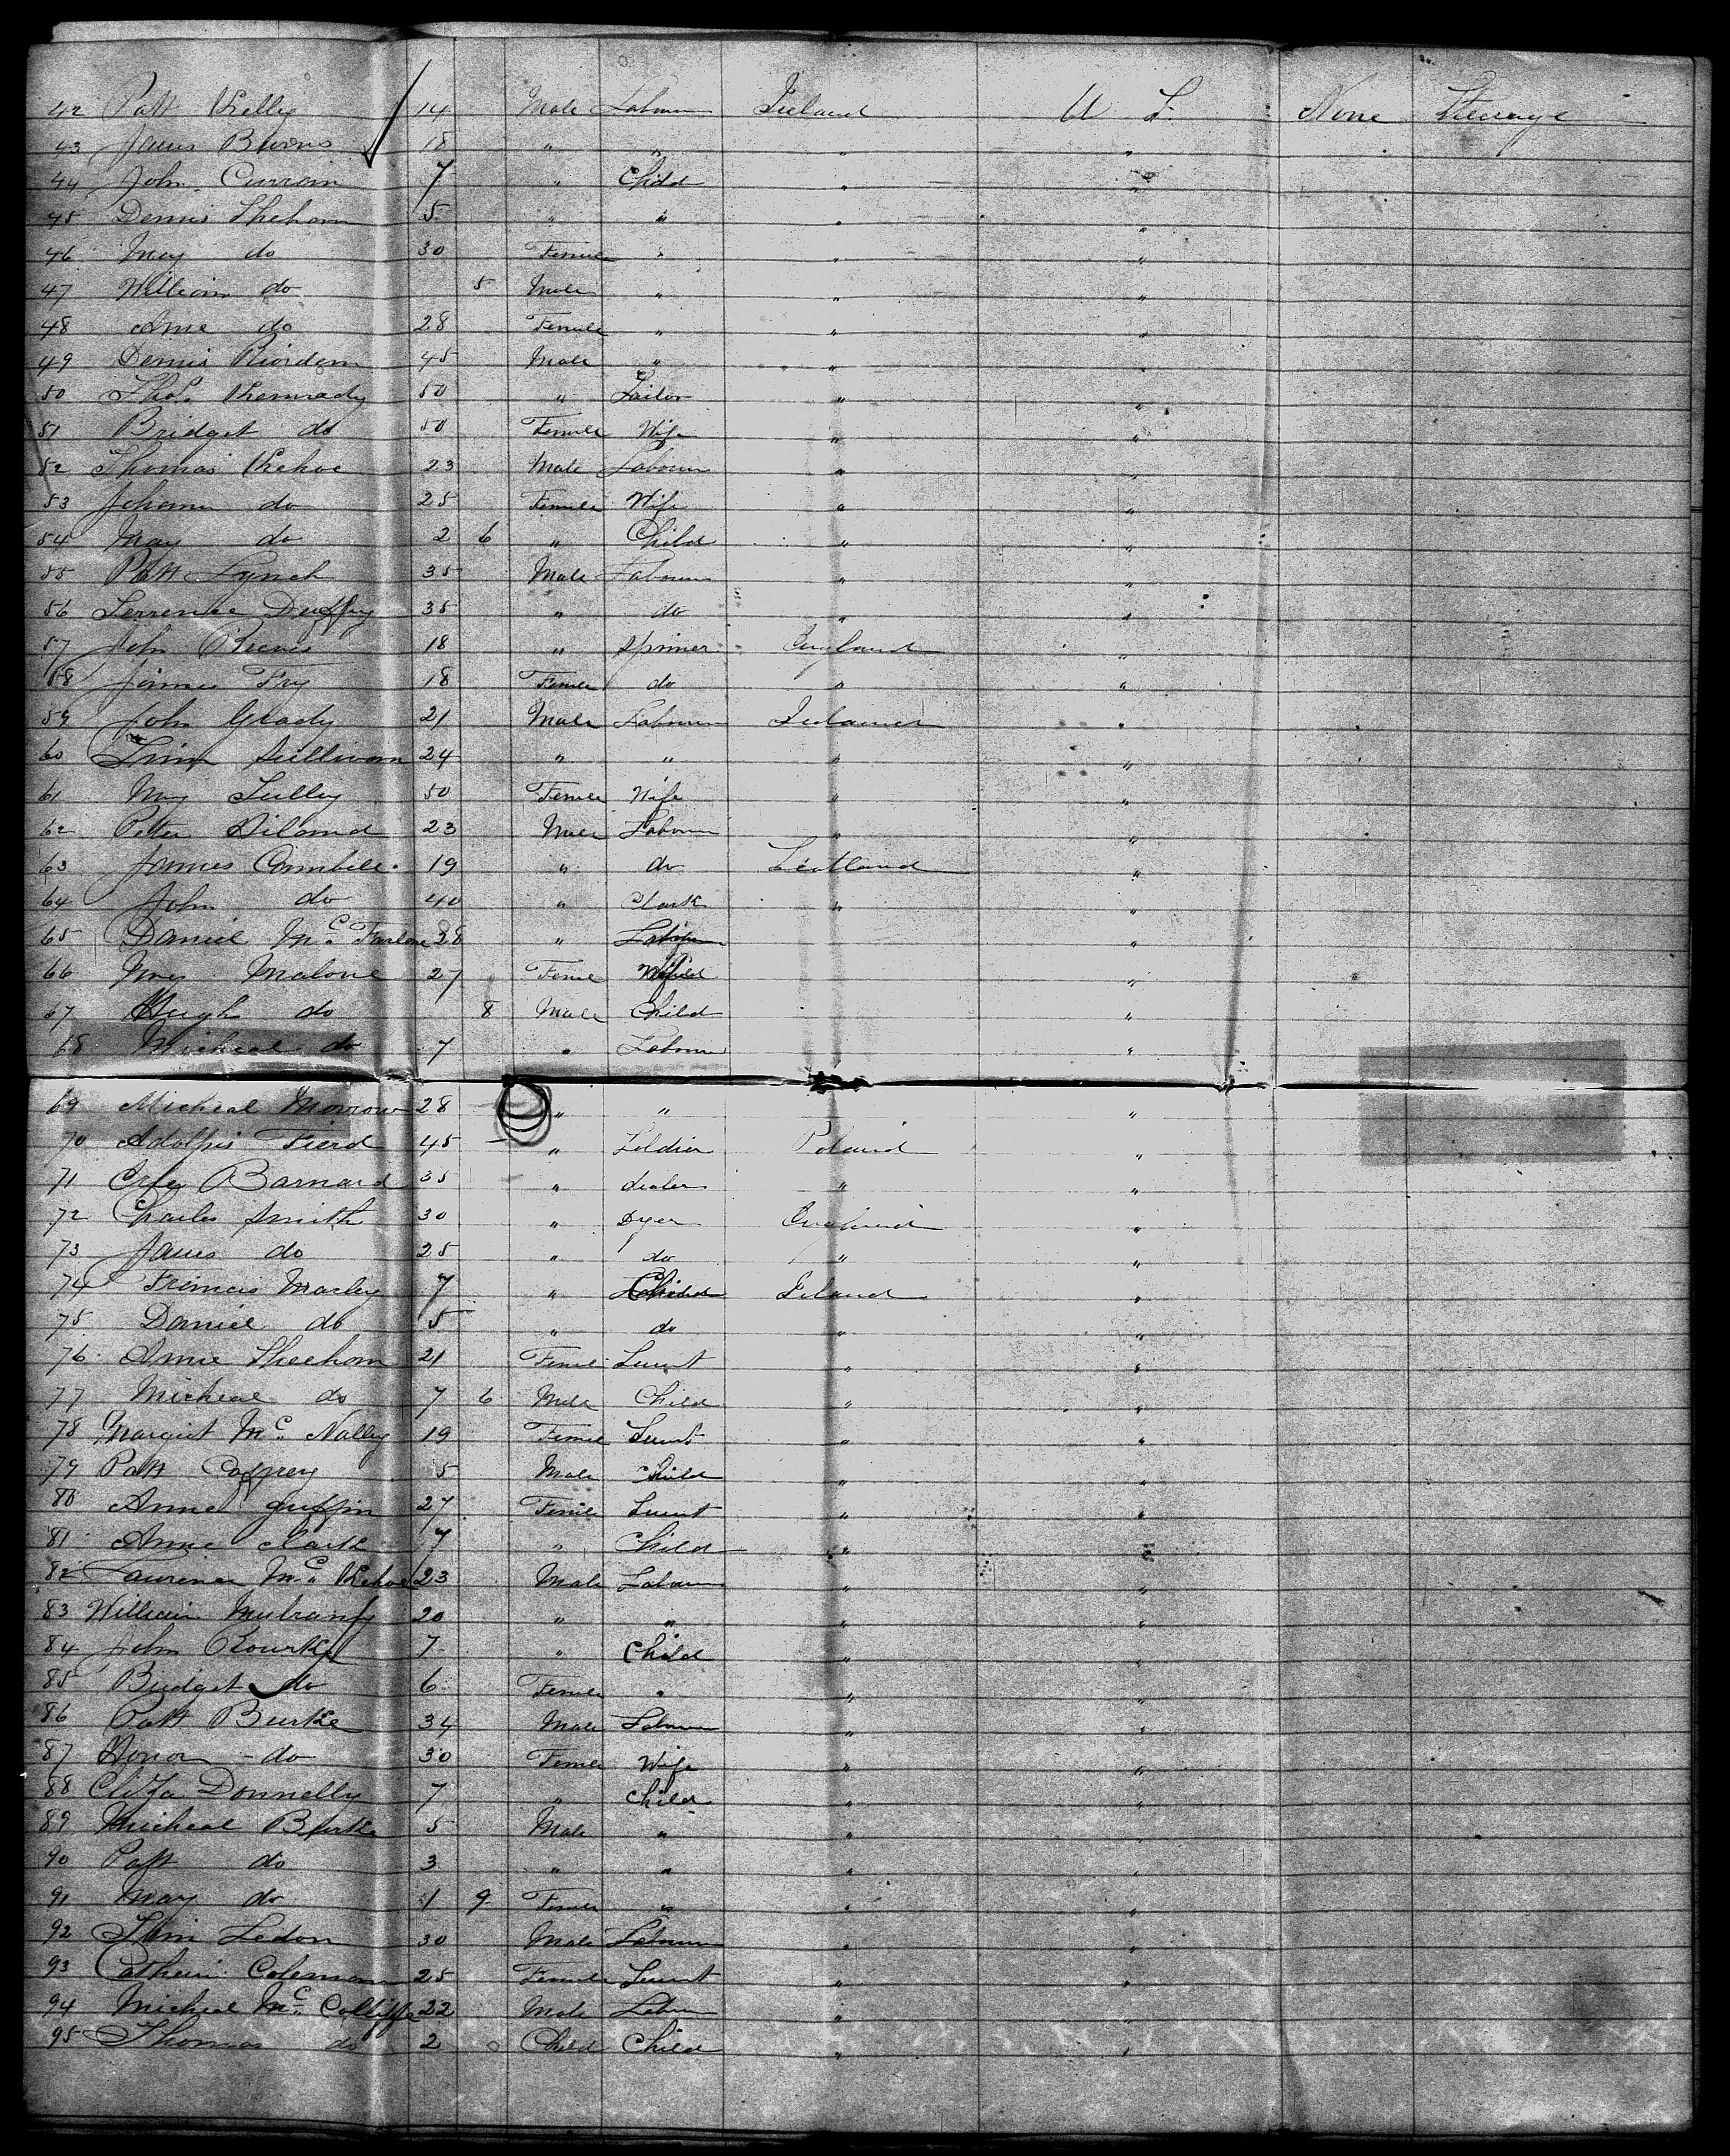 42 Patt Kelly 14 Male Labour Ireland U S. None Steerage
43 James Burns 18 " " " "
44 John Curran 7 " Child " "
45 Dennis Shehan 5 " " " "
46 May do 30 Female " " "
47 William do 5 Male " " "
48 Ann do 28 Female " " "
49 Dennis Riordan 45 Male " " "
50 Thos. Kennady 50 " Tailor " "
51 Bridget do 50 Female Wife " "
52 Thomas Kehoe 23 Male Labour " "
53 Johann do 25 Female Wife " "
54 May do 2 6 " Child " "
55 Patt Lynch 35 Male Labour " "
56 Terrence Duffy 35 " do " "
57 John 18 " Spinner England "
58 Fry 18 Female do " "
59 John Grady 21 Male Labour Ireland "
60 Tim Sullivan 24 " " " "
61 May Tully 50 Female Wife " "
62 Peter Diland 23 Male Labour " "
63 James Cambell 19 " do Scotland "
64 John do 40 " Clark " "
65 Daniel Mc Farlane 38 " Labour "
66 Malone 27 Female "
67 Hugh do 8 Male Child "
68 Micheal do 7 " Labour "
69 Micheal Morrow 28 " " "
70 Adolphis Fierd 45 " Soldier Poland "
71 Barnard 35 " dealer " "
72 Charles Smith 30 " Dyer England "
73 James do 25 " do " "
74 Francis Marley 7 " Child Ireland "
75 Daniel do 5 " do " "
76 Annie Sheehan 21 Female Survt " "
77 Micheal do 7 6 Male Child " "
78 Margret Mc Nally 19 Female Survt " "
79 Patt 5 Male Child " "
80 Anne Griffin 27 Female Survt " "
81 Anne Clark 7 " Child " "
82 Laurence Mc Kehoe 23 Male Labour " "
83 William 20 " " " "
84 John Rourke 7 " Child " "
85 Bridget do 6 Female " " "
86 Patt Burke 34 Male Labour " "
87 Honor do 30 Female Wife " "
88 Eliza Donnelly 7 " Child " "
89 Micheal Burke 5 Male " " "
90 Patt do 3 " " " "
91 May do 1 9 Female " " "
92 Ledon 30 Male Labour " "
93 Catherin Coleman 25 Female Survt " "
94 Micheal Mc Colliffe 22 Male Labour " "
95 Thomas do 2 0 Child Child " "